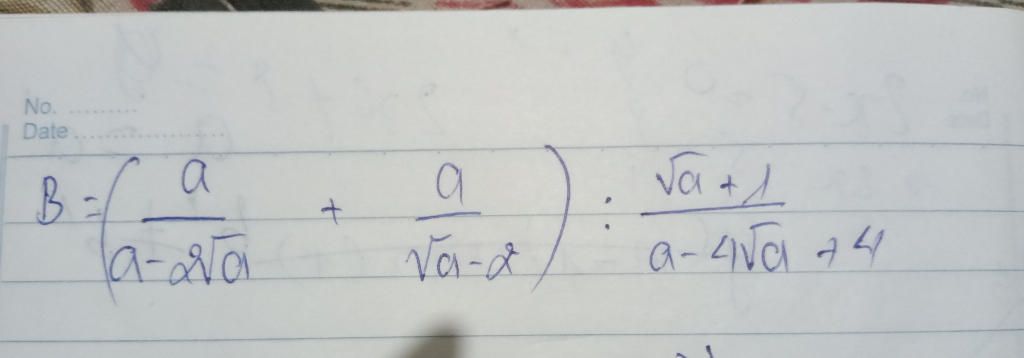 No. ..........
Date ......................
B = ( a/(a - 2√a) + a/(√a - 2) ) : (√a + 1)/(a - 4√a + 4)